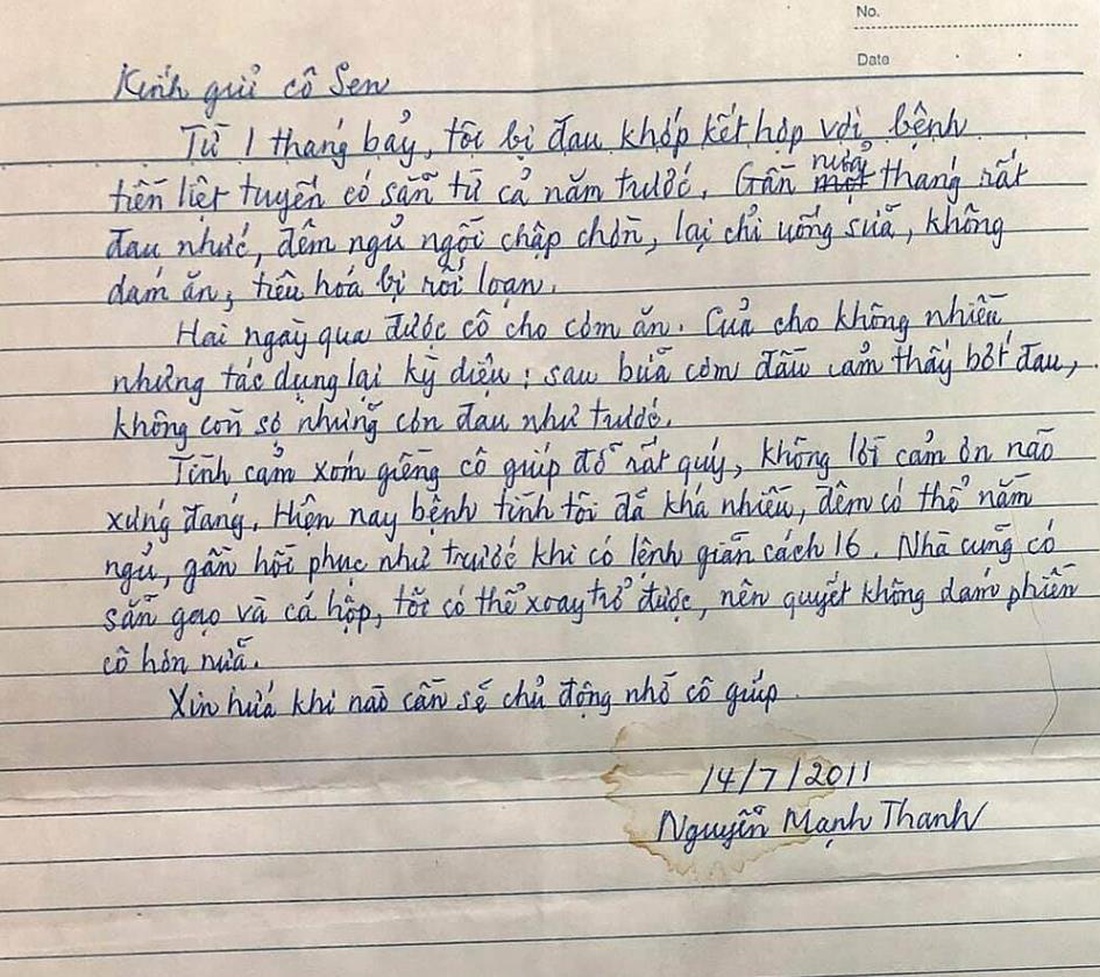 No.
Date
Kính gửi cô Sen
Từ 1 tháng bảy, tôi bị đau khớp kết hợp với bệnh
tiền liệt tuyến có sẵn từ cả năm trước. Gần nửa tháng rất
đau nhức, đêm ngủ ngồi chập chờn, lại chỉ uống sữa, không
dám ăn, tiêu hoá bị rối loạn.
Hai ngày qua được cô cho cơm ăn. Của cho không nhiều
nhưng tác dụng lại kỳ diệu: sau bữa cơm đầu cảm thấy bớt đau,
không còn sợ những cơn đau như trước.
Tình cảm xóm giềng cô giúp đỡ rất quý, không lời cảm ơn nào
xứng đáng. Hiện nay bệnh tình tôi đã khá nhiều, đêm có thể nằm
ngủ, gần hồi phục như trước khi có lệnh giãn cách 16. Nhà cũng có
sẵn gạo và cá hộp, tôi có thể xoay trở được, nên quyết không dám phiền
cô hơn nữa.
Xin hứa khi nào cần sẽ chủ động nhờ cô giúp.
14/7/2011
Nguyễn Mạnh Thanh